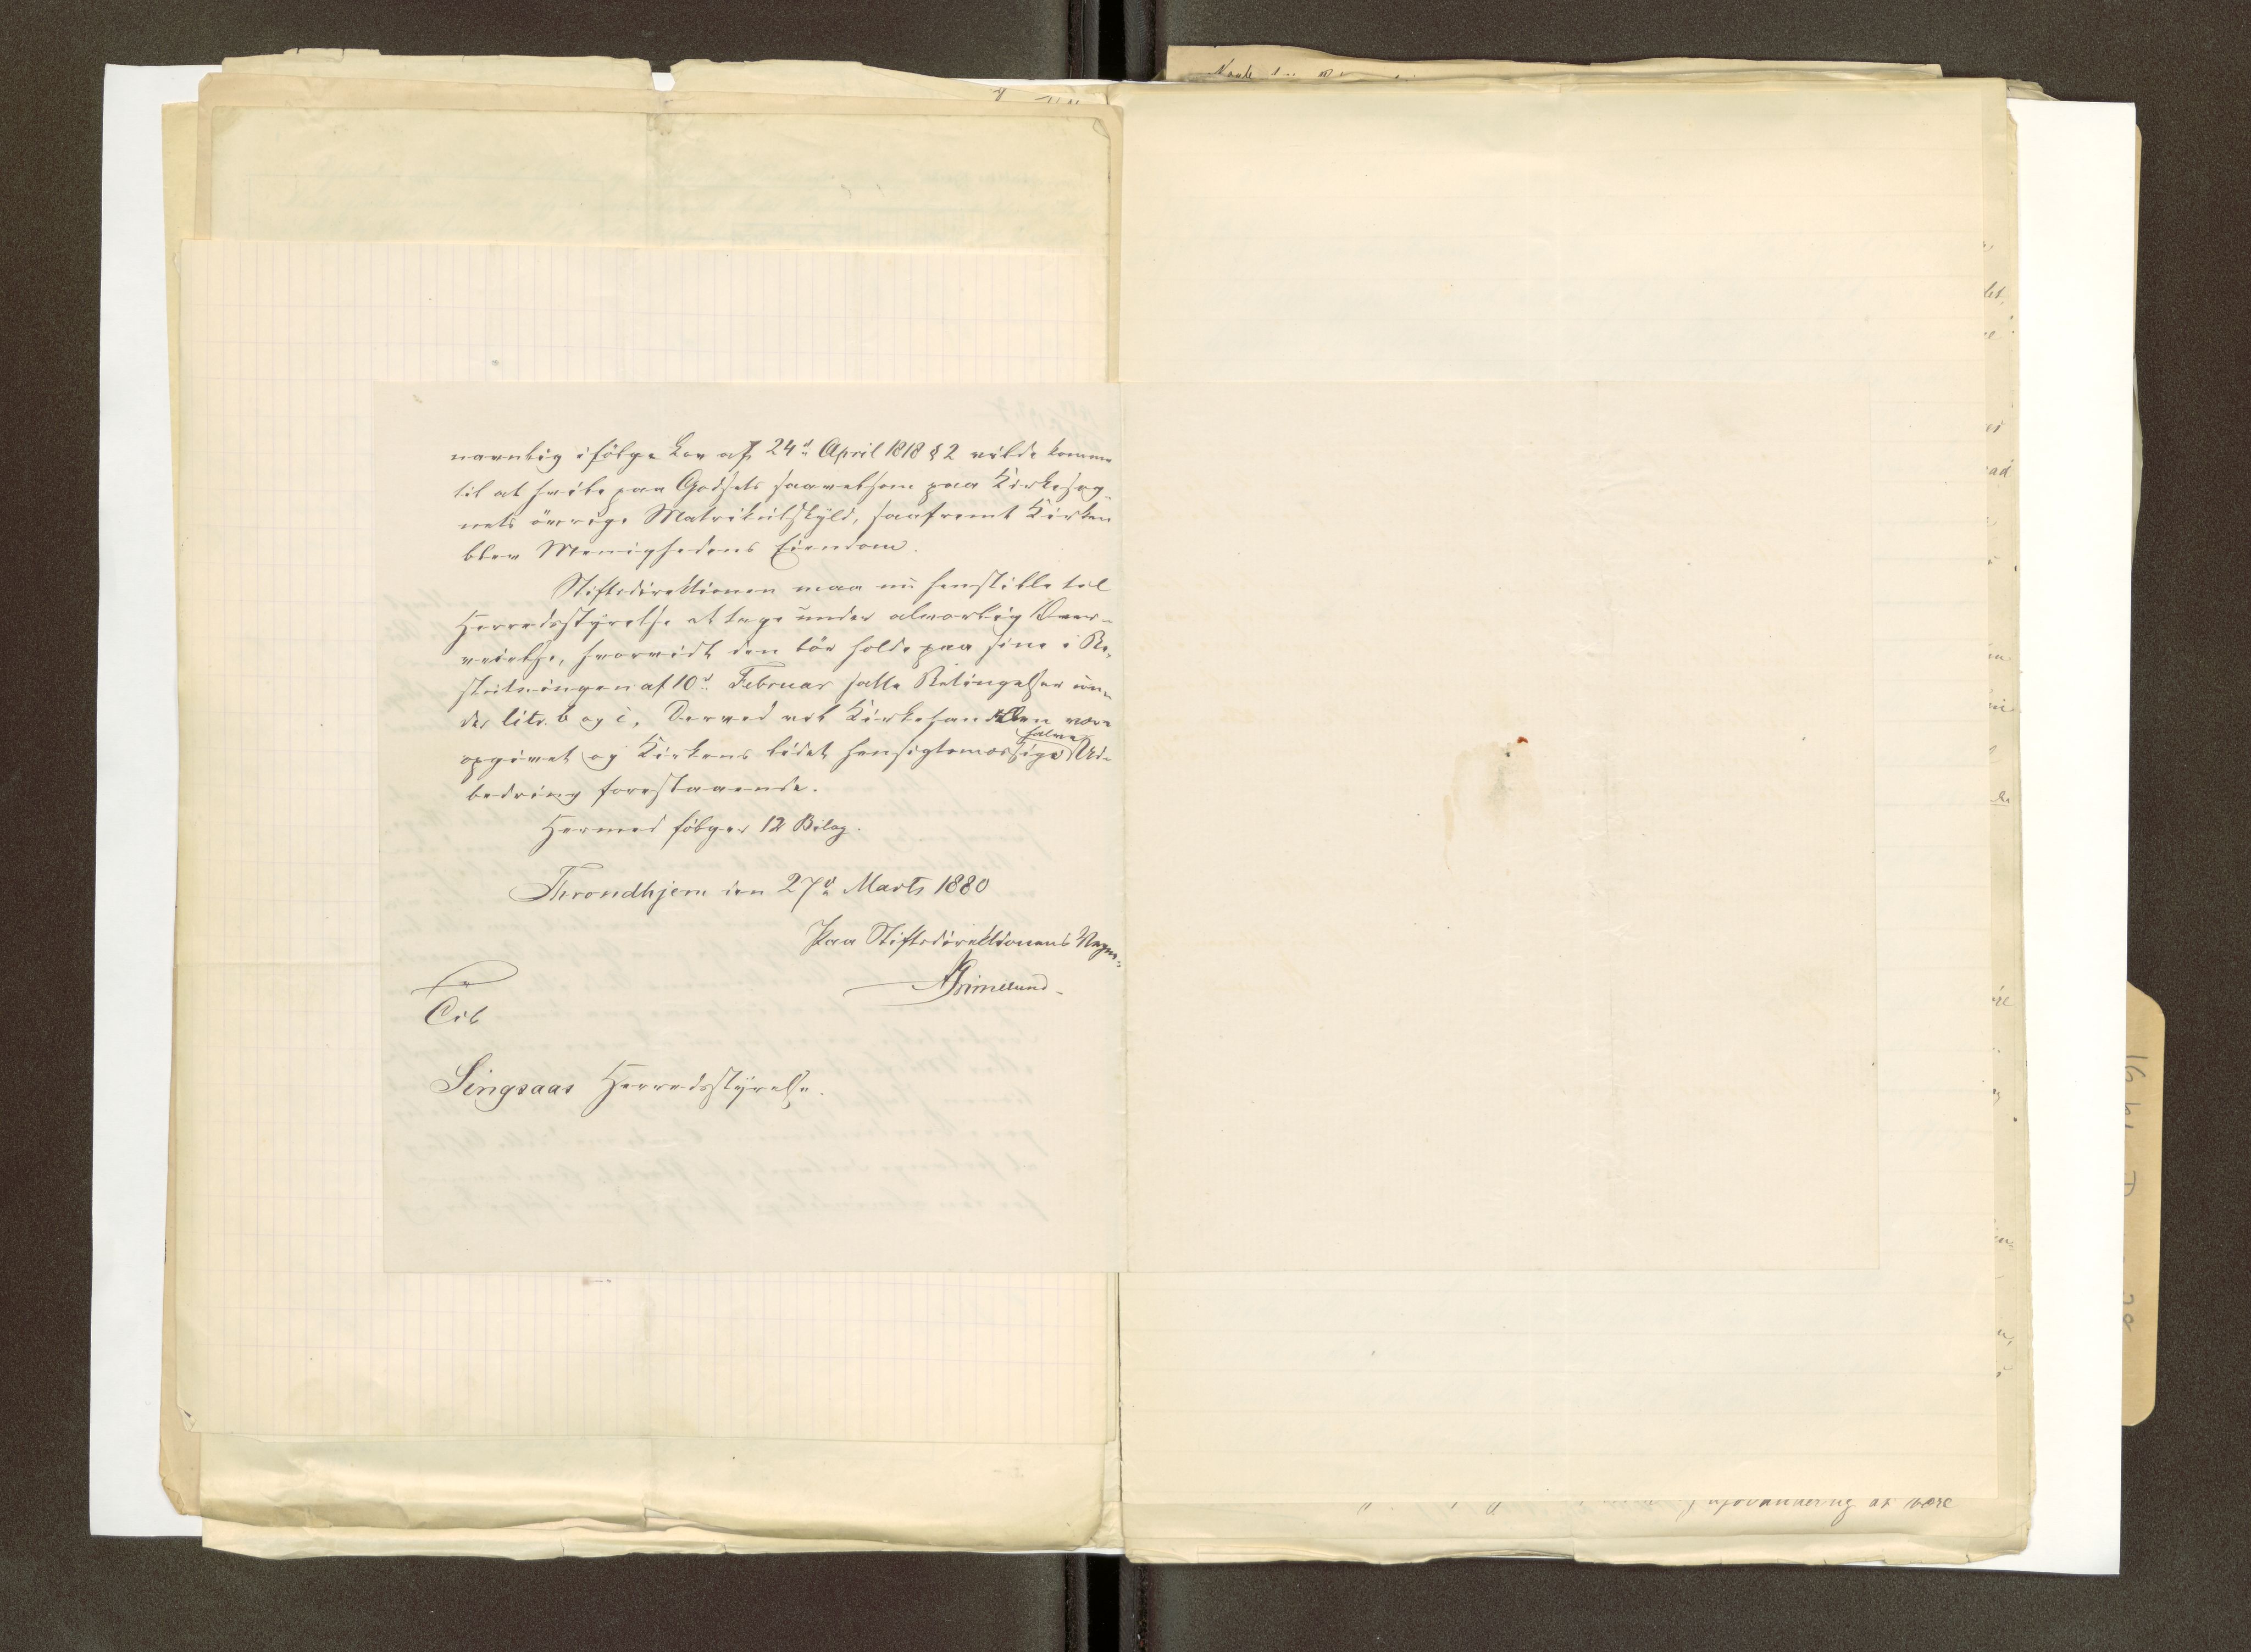 navnlig ifølge Lov af 24d April 1818 § 2 vilde komme
til at hvile paa Godsets saavelsom paa Kirkesog-
nets övrige Matrikulskyld, saafremt Kirken
blev Menighedens Eiendom.
Stiftsdirektionen maa nu henstille til
Herredsstyrelse at tage under alvorlig Over-
veielse, hvorvidt den bör holde paa sine i Be-
slutningen af 10d Februar satte Betingelser un-
der litr. b og c. Derved vil Kirkehandelen være
opgivet og Kirkens lidet hensigtsmæssige halve Ud-
bedring forestaaende.
Hermed følger 12 Bilag.
Throndhjem den 27d Marts 1880
Paa Stiftsdirektionens Vegne
Grimelund
Til
Singsaas Herredsstyrelse.
være